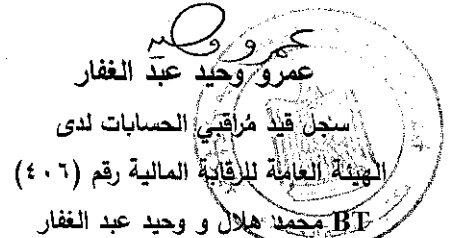 عمرو وحيد
عمرو وحيد عبد الغفار
سجل قيد مُراقبي الحسابات لدى
الهيئة العامة للرقابة المالية رقم (٤٠٦)
BT محمد هلال و وحيد عبد الغفار